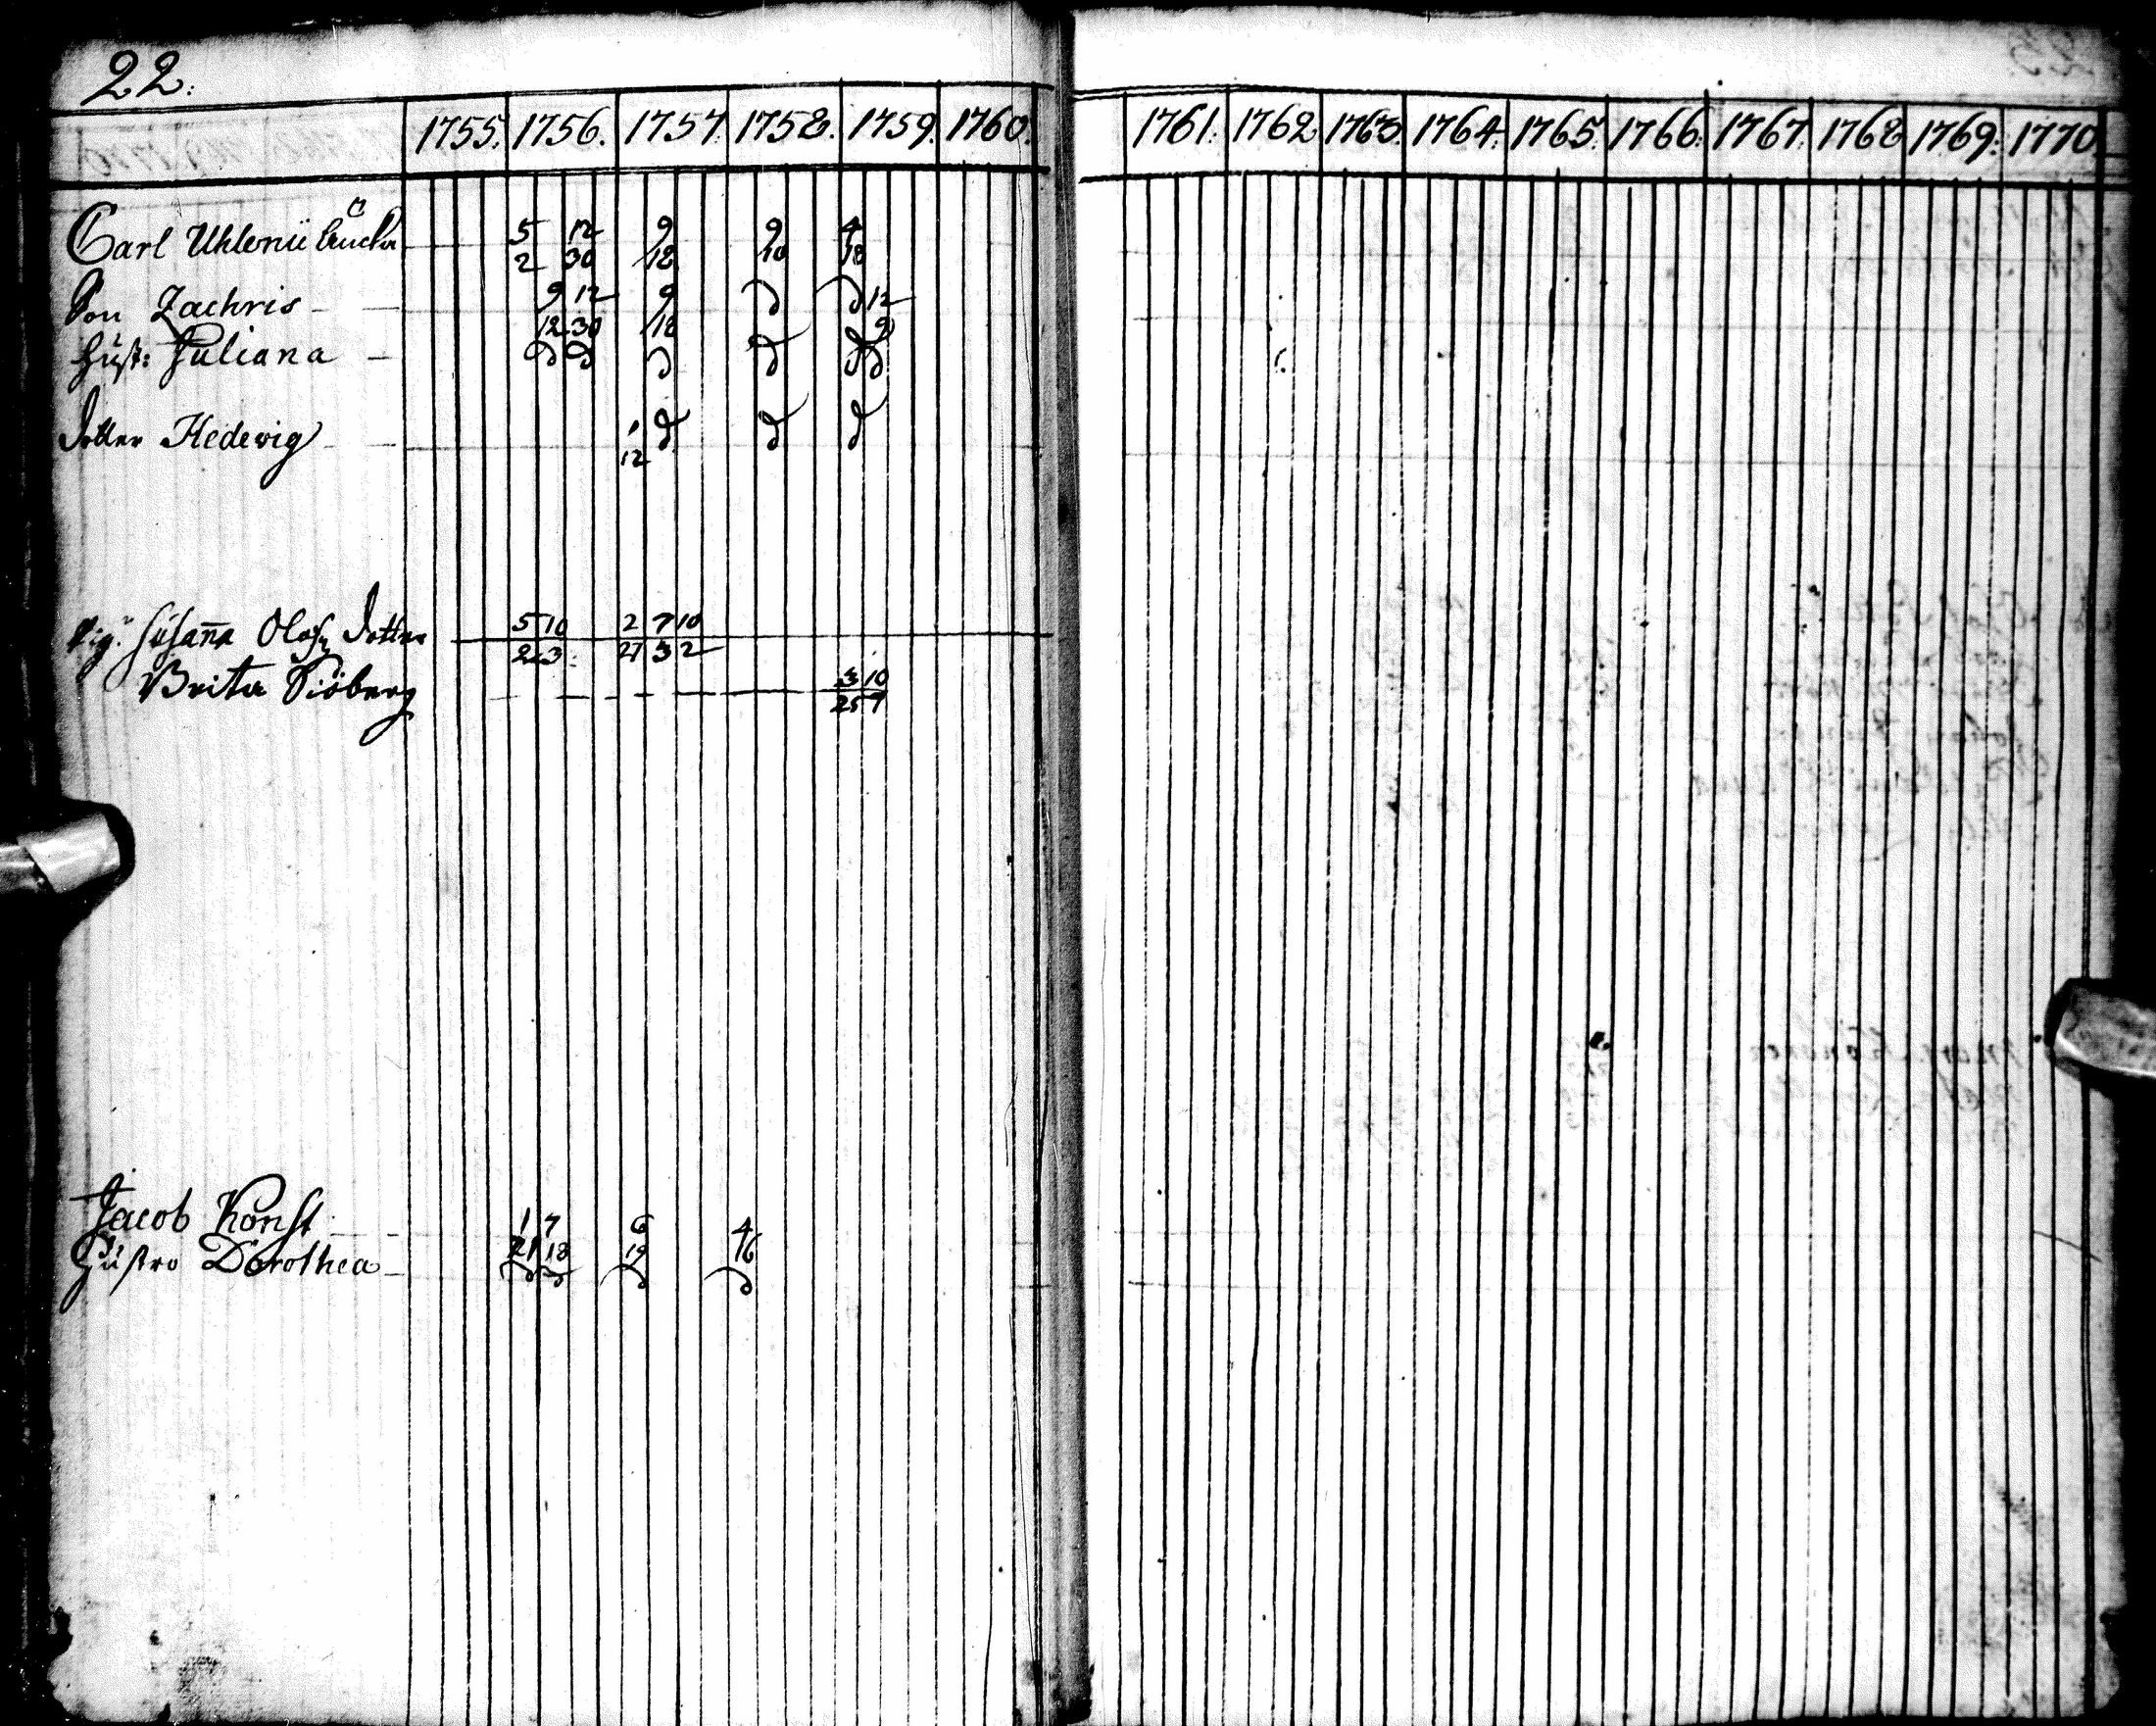 22.
1755. 1756. 1757. 1758. 1759. 1760. 1761. 1762 1763. 1764. 1765. 1766. 1767. 1768 1769. 1770.
Carl 5 12 9 9 4
2 30 18 10 18
Son Zachris 9 12 9 12
12 30 18 9
Hust: Juliana
dotter Hedewig 1
12
Pig. Susanna Olofs dotter 5 10 2 7 10
23 21 3 2
Brita Siöberg 3 10
25 7
Jacob Konst 1 7 6 4
21 18 19 16
Hustro Dorothea